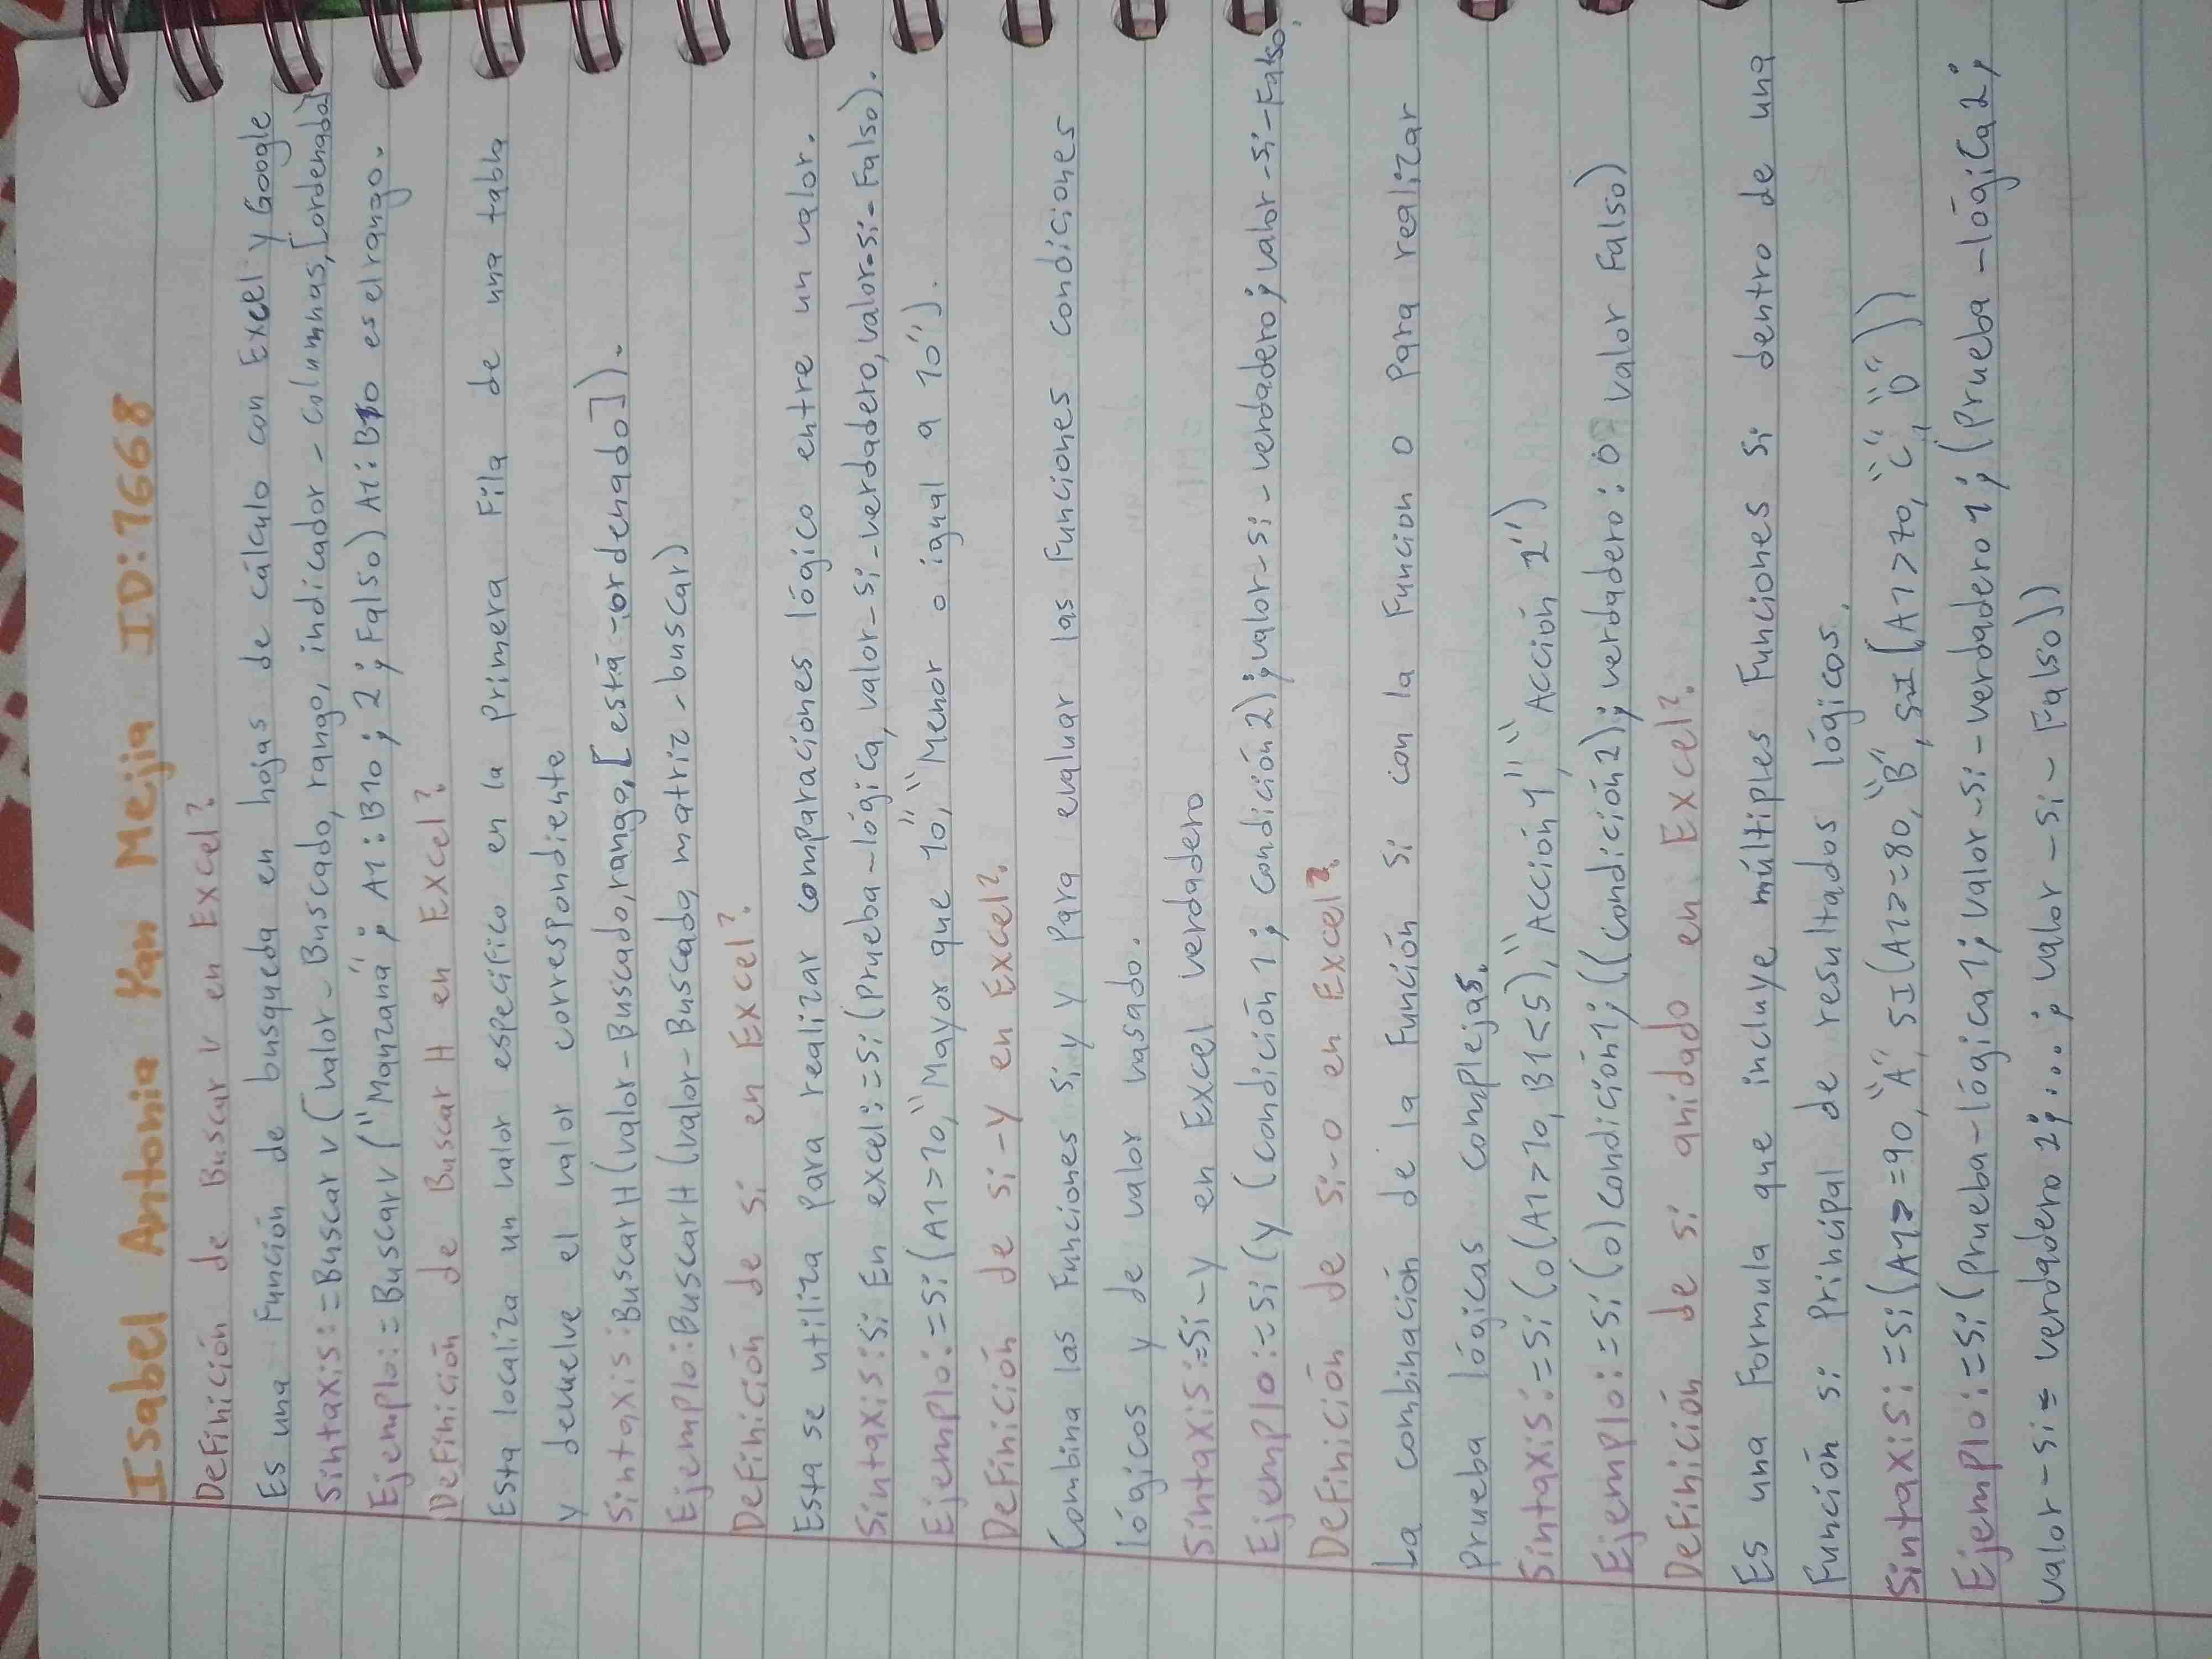 Isabel Antonia Yan Mejia ID:1668
Definición de Buscar V en Excel?
Es una Función de busqueda en hojas de cálculo con Excel y Google
Sintaxis:=Buscar v (valor-Buscado, rango, indicador-columnas,[ordenada]
Ejemplo:=Buscarv ("Manzana"; A1:B10; 2; Falso) A1:B10 es el rango.
Definición de Buscar H en Excel?
Esta localiza un valor especifico en la primera Fila de una tabla
y devuelve el valor correspondiente
Sintaxis:BuscarH(valor-Buscado,rango,[está-ordenado]).
Ejemplo:BuscarH(valor-Buscado, matriz-buscar)
Definición de si en Excel?
Esta se utiliza Para realizar comparaciones lógico entre un valor.
Sintaxis:si En excel:=si(Prueba-lógica, valor-si-verdadero,valor-si-Falso).
Ejemplo:=si(A1>10,"Mayor que 10","Menor o igual a 10").
Definición de si-y en Excel?
Combina las Funciones si y y Para evaluar las Funciones condiciones
lógicos y de valor vasado.
Sintaxis:=si-y en Excel verdadero
Ejemplo:=si(y (condición 1; condición 2); valor-si-verdadero; valor-si-Falso.
Definición de si-o en Excel?
La combinación de la Función si con la Funcion o Para realizar
Prueba lógicas complejas.
Sintaxis:=si(o(A1>10, B1<5),"Acción 1","Acción 2")
Ejemplo:=si(o)condición1;((condición2); verdadero:o valor Falso)
Definición de si anidado en Excel?
Es una Formula que incluye múltiples Funciones si dentro de una
Función si Principal de resultados lógicos.
Sintaxis:=si(A1>=90,"A", SI(A1>=80,"B", SI(A1>70,"C","D"))
Ejemplo:=si(Prueba-lógica1; valor-si-verdadero 1; (Prueba-lógica2;
valor-si=verdadero 2;...; valor-si-Falso))